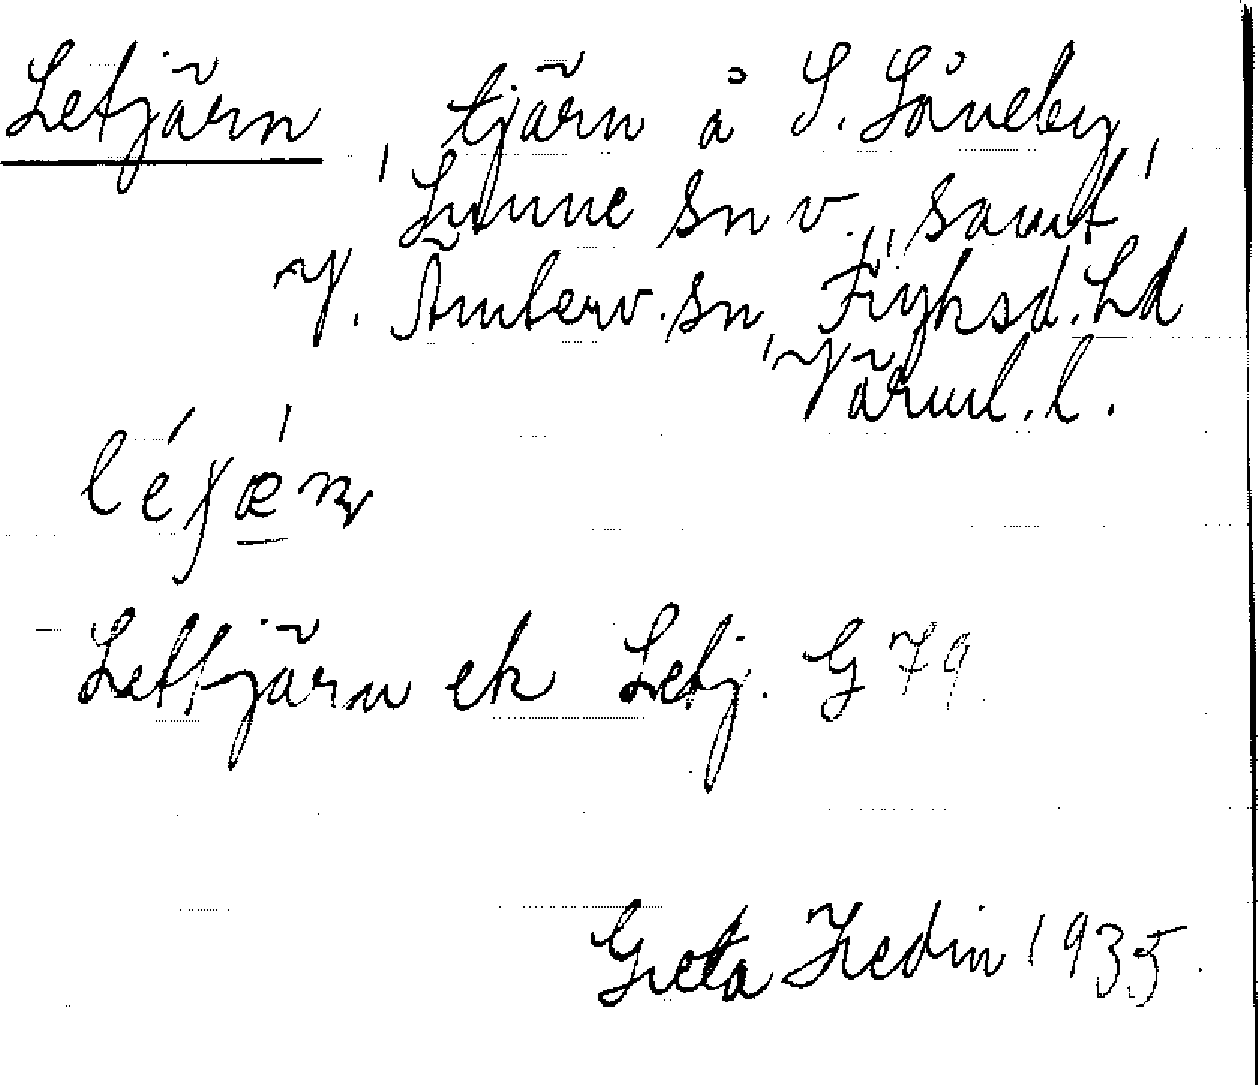 Letjärn, tjärn å S. Låneby,
Lysvik sn v., samt
V. Ämterv. sn, Fryksd. hd
Värml. l.
Lettjärn ek Letj. G 79.
Greta Hedin 1935.